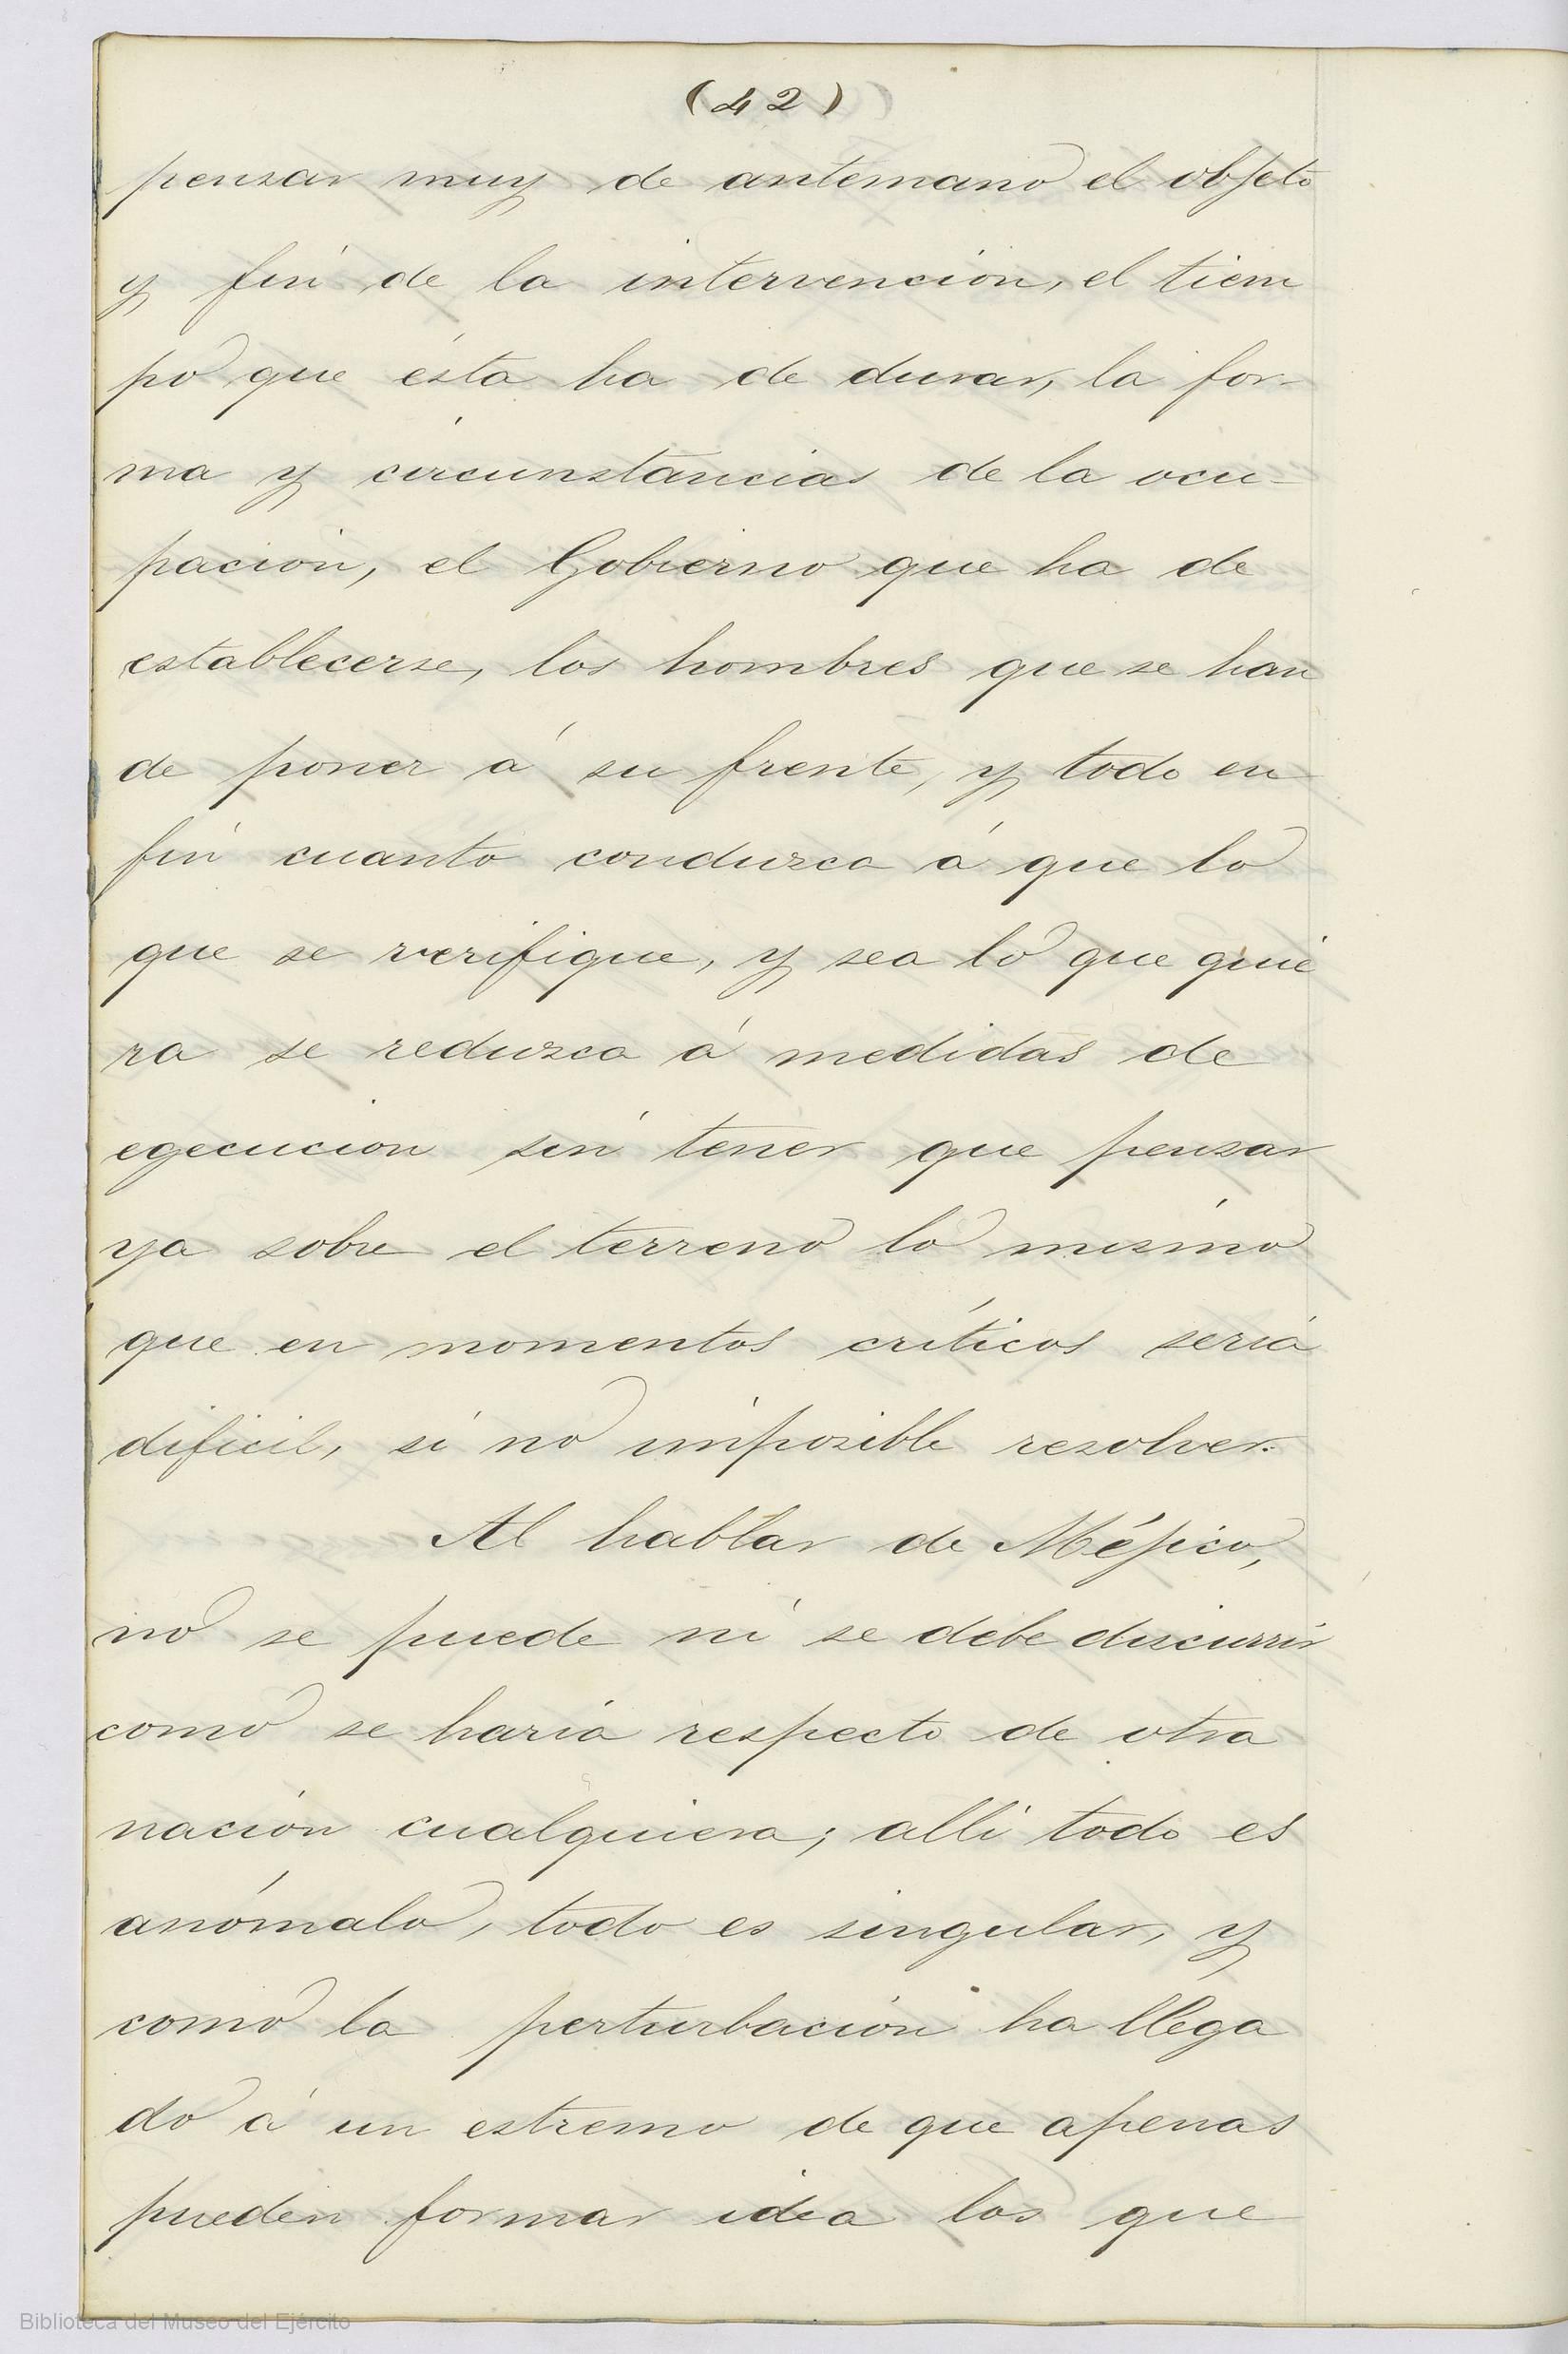 (42)
pensar muy de antemano el objeto
y fin de la intervencion, el tiem
po que ésta ha de durar, la for-
ma y circunstancias de la ocu-
pacion, el Gobierno que ha de
establecerse, los hombres que se han
de poner á su frente, y todo en
fin cuanto conduzca á que lo
que se verifique, y sea lo que quie
ra se reduzca á medidas de
egecucion sin tener que pensar
ya sobre el terreno lo mismo
que en momentos críticos seria
dificil, si no imposible resolver.
Al hablar de Méjico,
no se puede ni se debe discurrir
como se haria respecto de otra
nacion cualquiera; alli todo es
anómalo, todo es singular, y
como la perturbacion ha llega
do á un estremo de que apenas
pueden formar idea los que
Biblioteca del Museo del Ejército